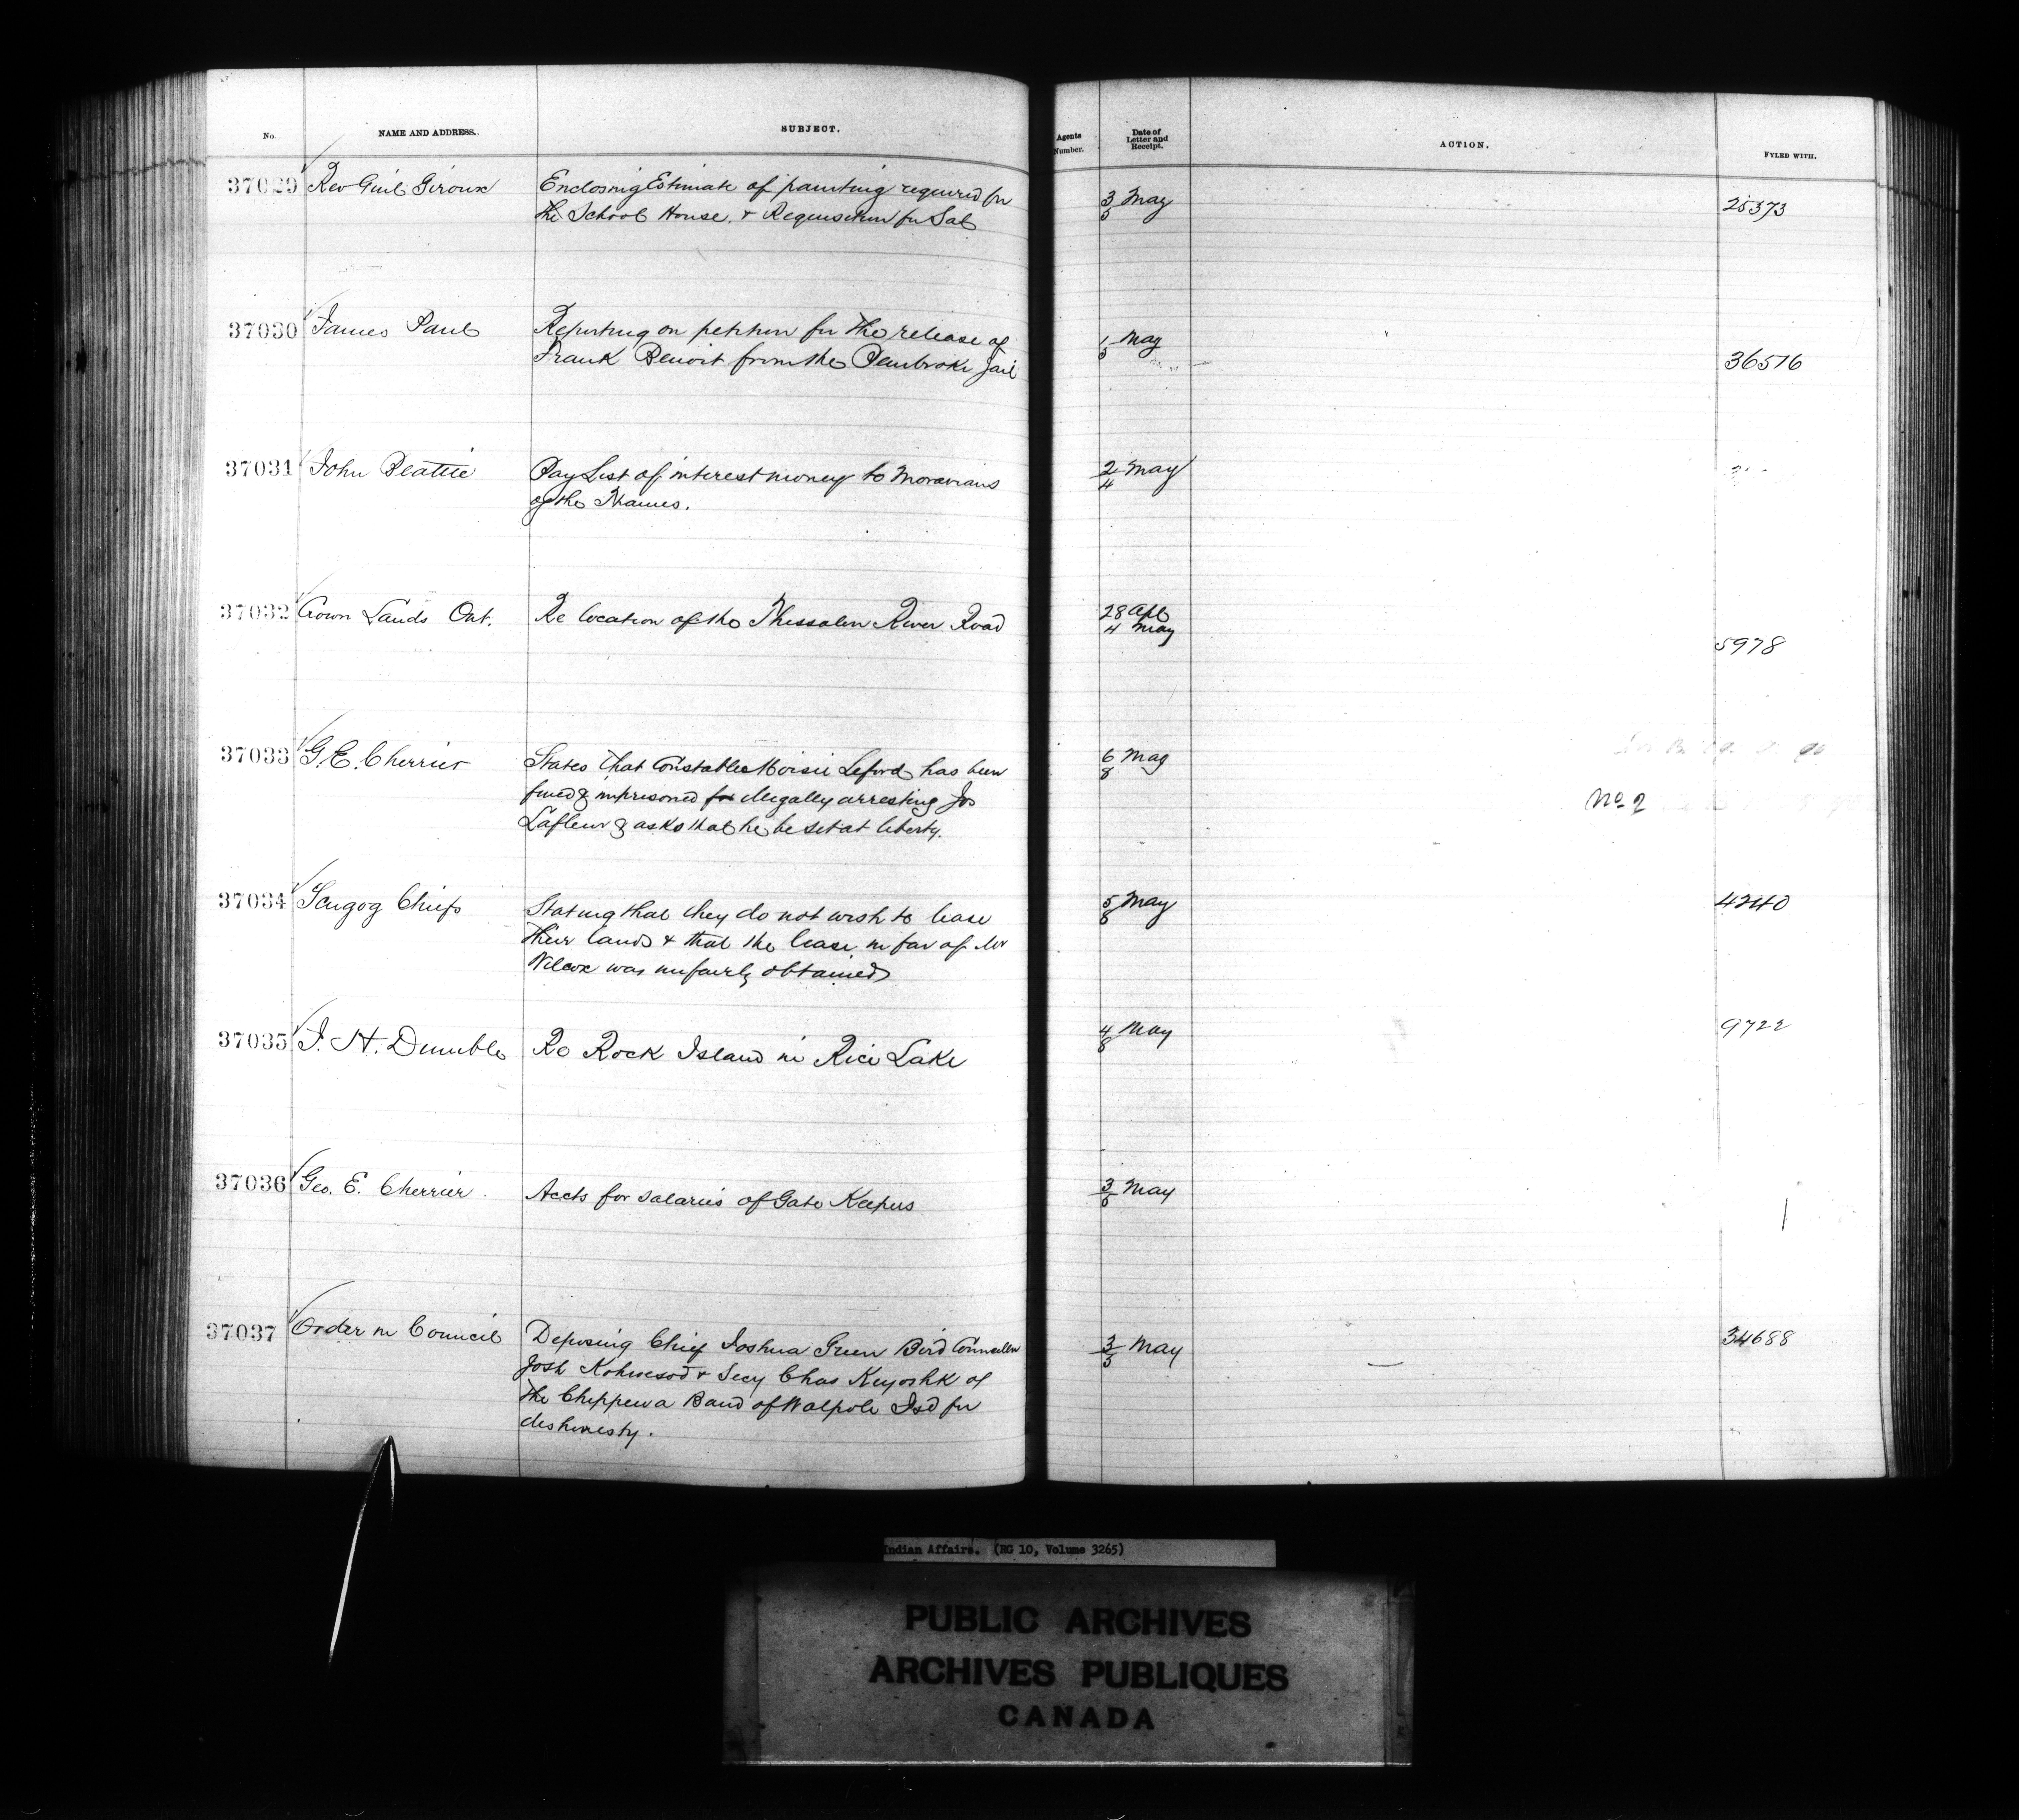 No. NAME AND ADDRESS. SUBJECT. Agents Number. Date of Letter and Receipt. ACTION. FYLED WITH.
37029 Rev Guil Giroux Enclosing Estimate of painting required for 3/5 May 25373
the School House, & Requisition for Sal
37030 James Paul Reporting on petition for the release of 1/5 May 36516
Frank Benoit from the Pembroke Jail
37031 John Beattie Pay List of interest money to Moravians 2/4 May
of the Thames.
37032 Crown Lands Ont. Re location of the Thessalon River Road 28 Apl 5978
4 May
37033 G. E. Cherrier States that Constable Moisie Leford has been 6/8 May
fined & imprisoned for illegally arresting Jos No 2
Lafleur & asks that he be set at liberty.
37034 Scugog Chiefs Stating that they do not wish to lease 5/8 May 4240
their lands & that the lease in fav of Mr
Wilcox was unfairly obtained
37035 J. H. Dumble Re Rock Island in Rice Lake 4/8 May 9722
37036 Geo. E. Cherrier. Accts for salaries of Gate Keepers 3/6 May
37037 Order in Council Deposing Chief Joshua Green Bird Councillor 3/5 May 34688
Josh & Secy Chas Keyoshk of
the Chippewa Band of Walpole Isd for
dishonesty.
Indian Affairs. (RG 10, Volume 3265)
PUBLIC ARCHIVES
ARCHIVES PUBLIQUES
CANADA